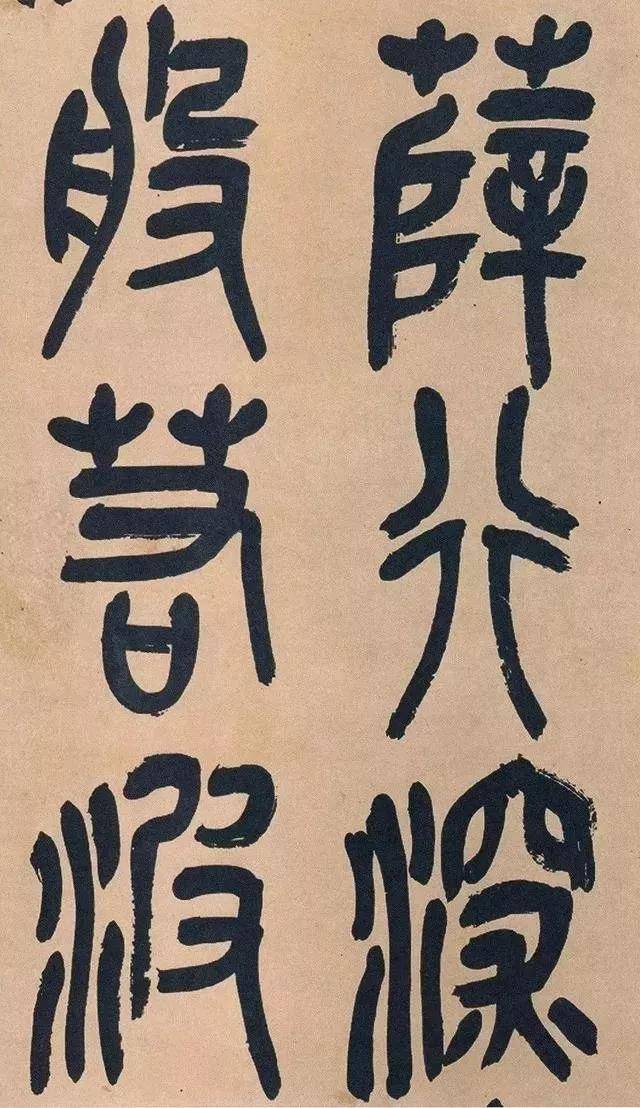 薩行深
般若波